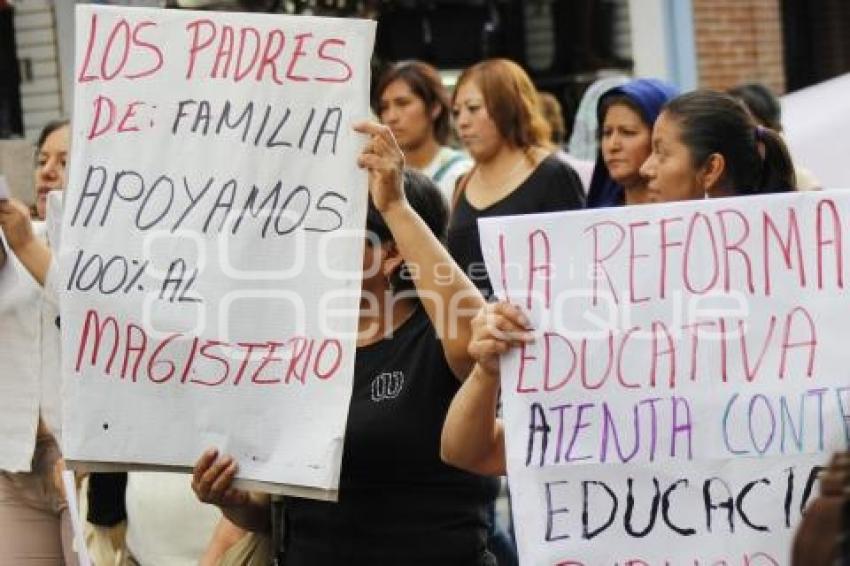 LOS PADRES
DE: FAMILIA
APOYAMOS
100% AL
MAGISTERIO
LA REFORMA
EDUCATIVA
ATENTA CONTR
EDUCACIÓ
agencia
enfoque